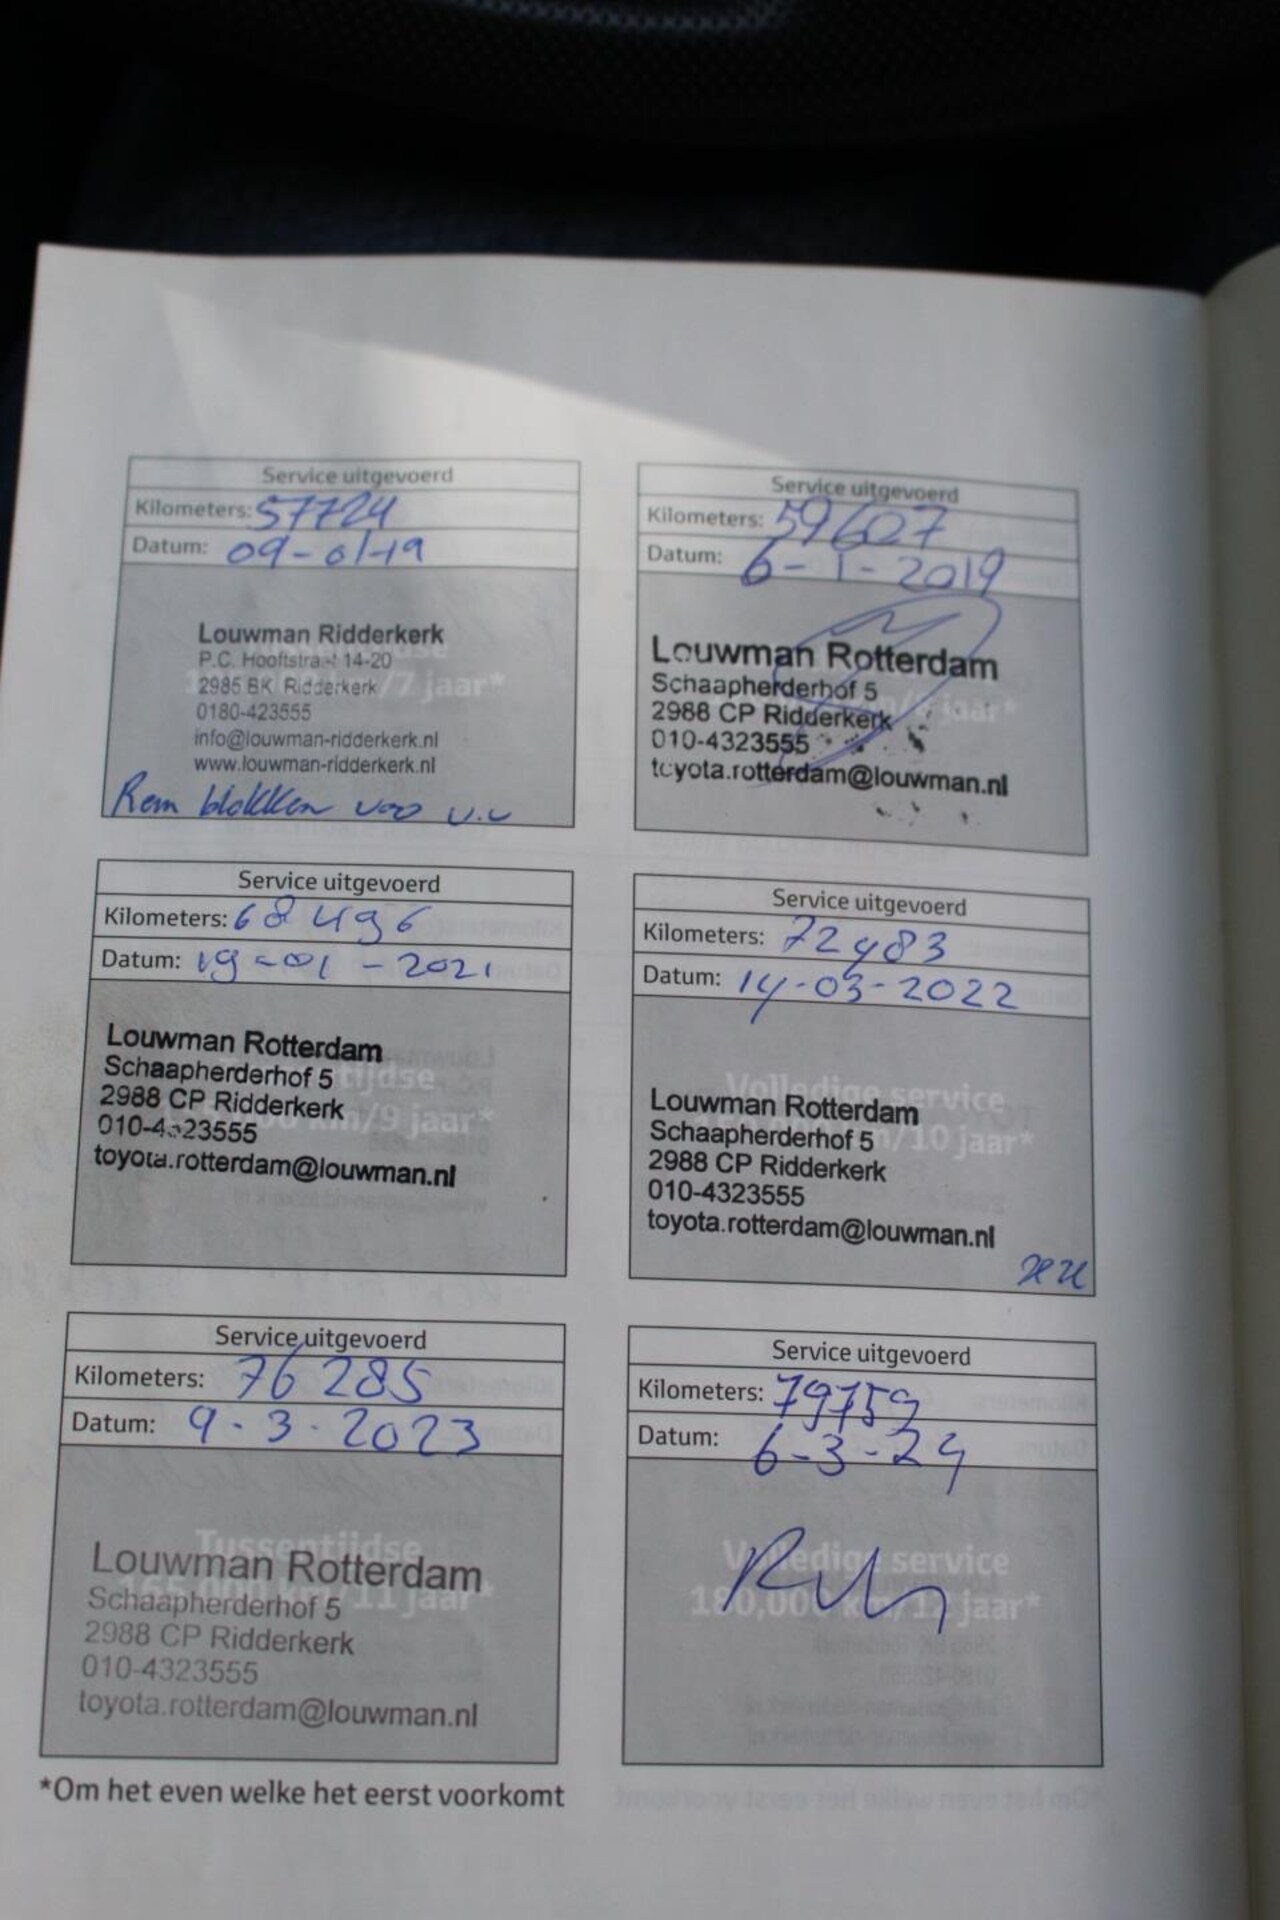 Service uitgevoerd
Kilometers: 57724
Datum: 09-01-19
Louwman Ridderkerk
P.C. Hooftstraat 14-20
2985 BK Ridderkerk
/7 jaar*
0180-423555
info@louwman-ridderkerk.nl
www.louwman-ridderkerk.nl
Rem blokken voo v.v
Service uitgevoerd
Kilometers: 59607
Datum: 6-1-2019
Louwman Rotterdam
Schaapherderhof 5
2988 CP Ridderkerk
jaar*
010-4323555
toyota.rotterdam@louwman.nl
Service uitgevoerd
Kilometers: 68496
Datum: 19-01-2021
Louwman Rotterdam
Schaapherderhof 5
2988 CP Ridderkerk
km/9 jaar*
010-4323555
toyota.rotterdam@louwman.nl
Service uitgevoerd
Kilometers: 72983
Datum: 14-03-2022
Volledige service
km/10 jaar*
Louwman Rotterdam
Schaapherderhof 5
2988 CP Ridderkerk
010-4323555
toyota.rotterdam@louwman.nl
Service uitgevoerd
Kilometers: 76285
Datum: 9-3-2023
Tussentijdse
165.000 km/11 jaar*
Louwman Rotterdam
Schaapherderhof 5
2988 CP Ridderkerk
010-4323555
toyota.rotterdam@louwman.nl
Service uitgevoerd
Kilometers: 79759
Datum: 6-3-24
Volledige service
180,000 km/12 jaar*
*Om het even welke het eerst voorkomt